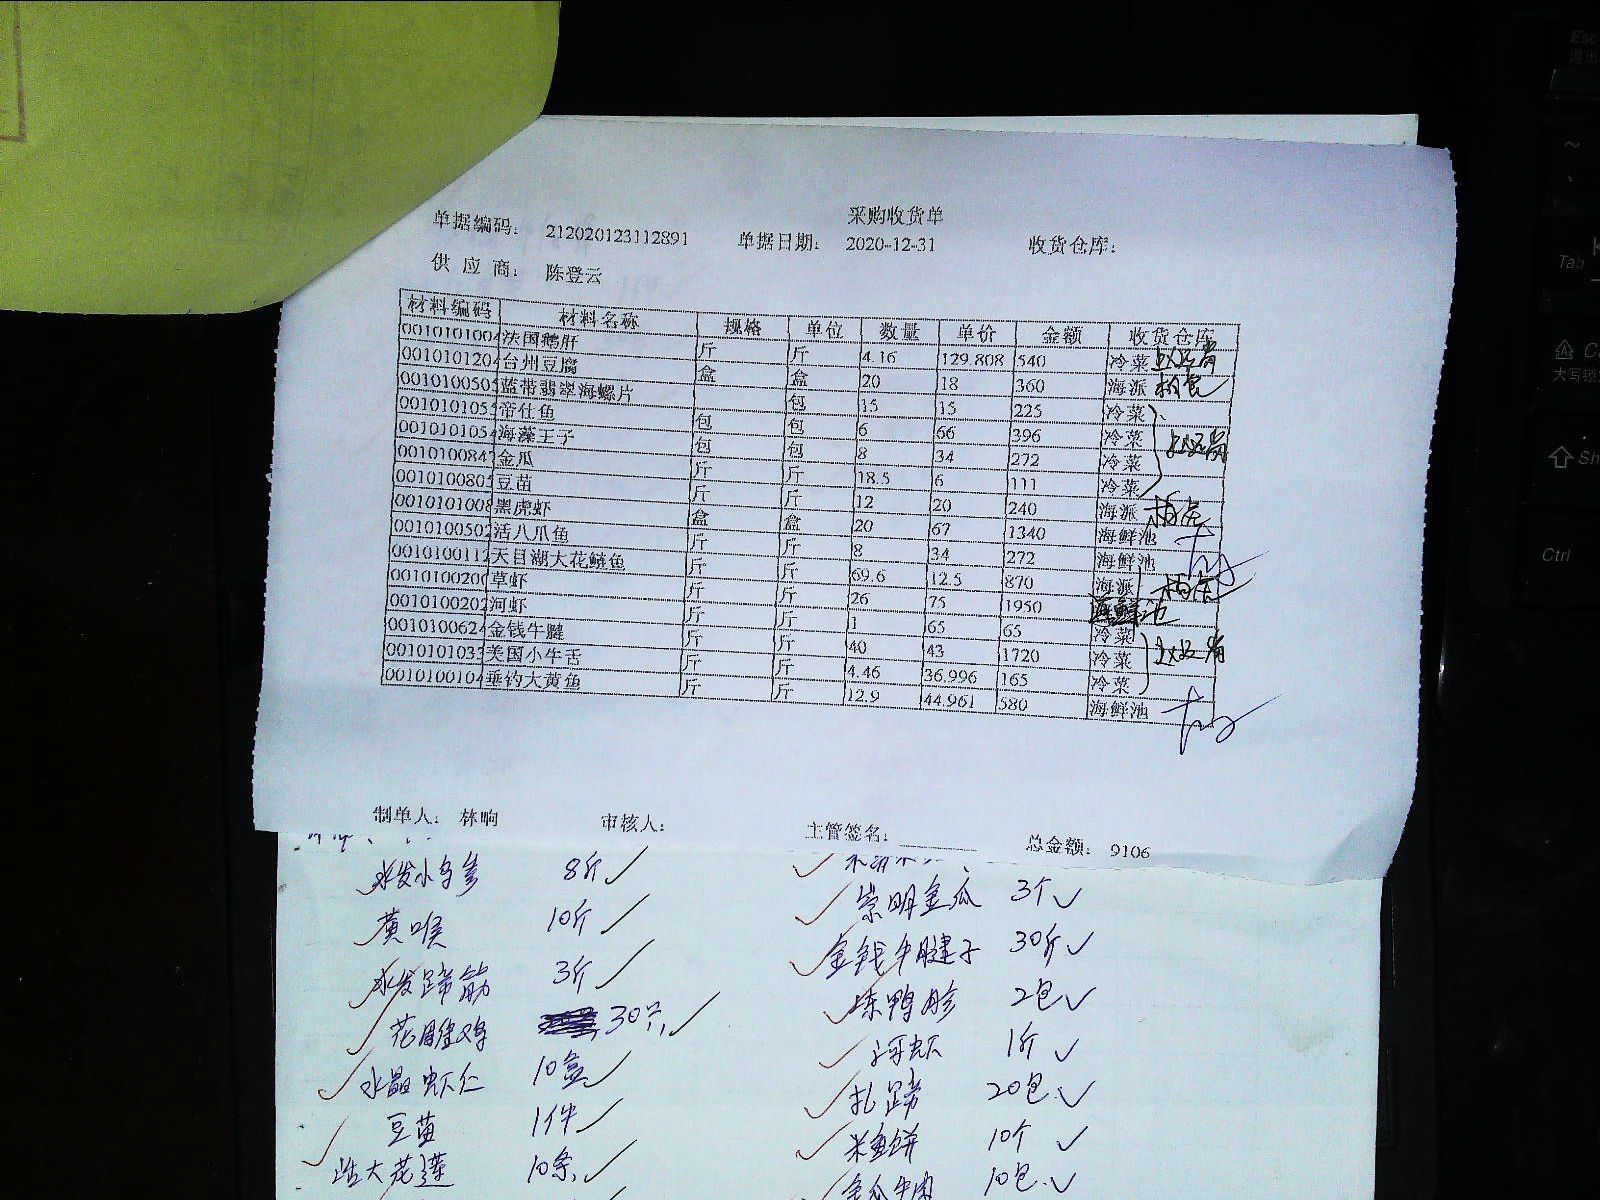 采购收货单
单据编码： 212020123112891 单据日期： 2020-12-31 收货仓库：
供 应 商： 陈登云
材料编码 材料名称 规格 单位 数量 单价 金额 收货仓库
0010101004 法国鹅肝 斤 斤 4.16 129.808 540 冷菜
0010101204 台州豆腐 盒 盒 20 18 360 海派
0010100505 蓝带翡翠海螺片 包 15 15 225 冷菜
001010105 帝仕鱼 包 包 6 66 396 冷菜
0010101054 海藻王子 包 包 8 34 272 冷菜
001010084 金瓜 斤 斤 18.5 6 111 冷菜
001010080 豆苗 斤 斤 12 20 240 海派
0010101008 黑虎虾 盒 盒 20 67 1340 海鲜池
0010100502 活八爪鱼 斤 斤 8 34 272 海鲜池
0010100112 天目湖大花鲢鱼 斤 斤 69.6 12.5 870 海派
001010020 草虾 斤 斤 26 75 1950 海鲜池
0010100202 河虾 斤 斤 1 65 65 冷菜
0010100624 金钱牛腱 斤 斤 40 43 1720 冷菜
001010103 美国小牛舌 斤 斤 4.46 36.996 165 冷菜
0010100104 垂钓大黄鱼 斤 斤 12.9 44.961 580 海鲜池
制单人： 林响 审核人： 主管签名： 总金额： 9106
水发小乌参 8斤 ✓
崇明金瓜 3个 ✓
黄喉 10斤 ✓
金钱牛腱子 30斤 ✓
水发蹄筋 3斤 ✓
冻鸭胗 2包 ✓
花雕鸡 30只 ✓
河虾 1斤 ✓
水晶虾仁 10盒 ✓
扎蹄 20包 ✓
豆苗 1件 ✓
米鱼饼 10个 ✓
活大花莲 10条 ✓
金瓜牛肉 10包 ✓